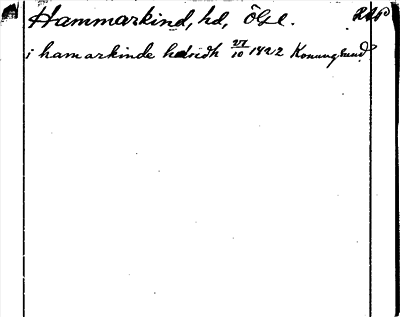 Hammarkind, hd, Ögl. RAp
i hamarkinde hdridh 27/10 1422 Konungsund